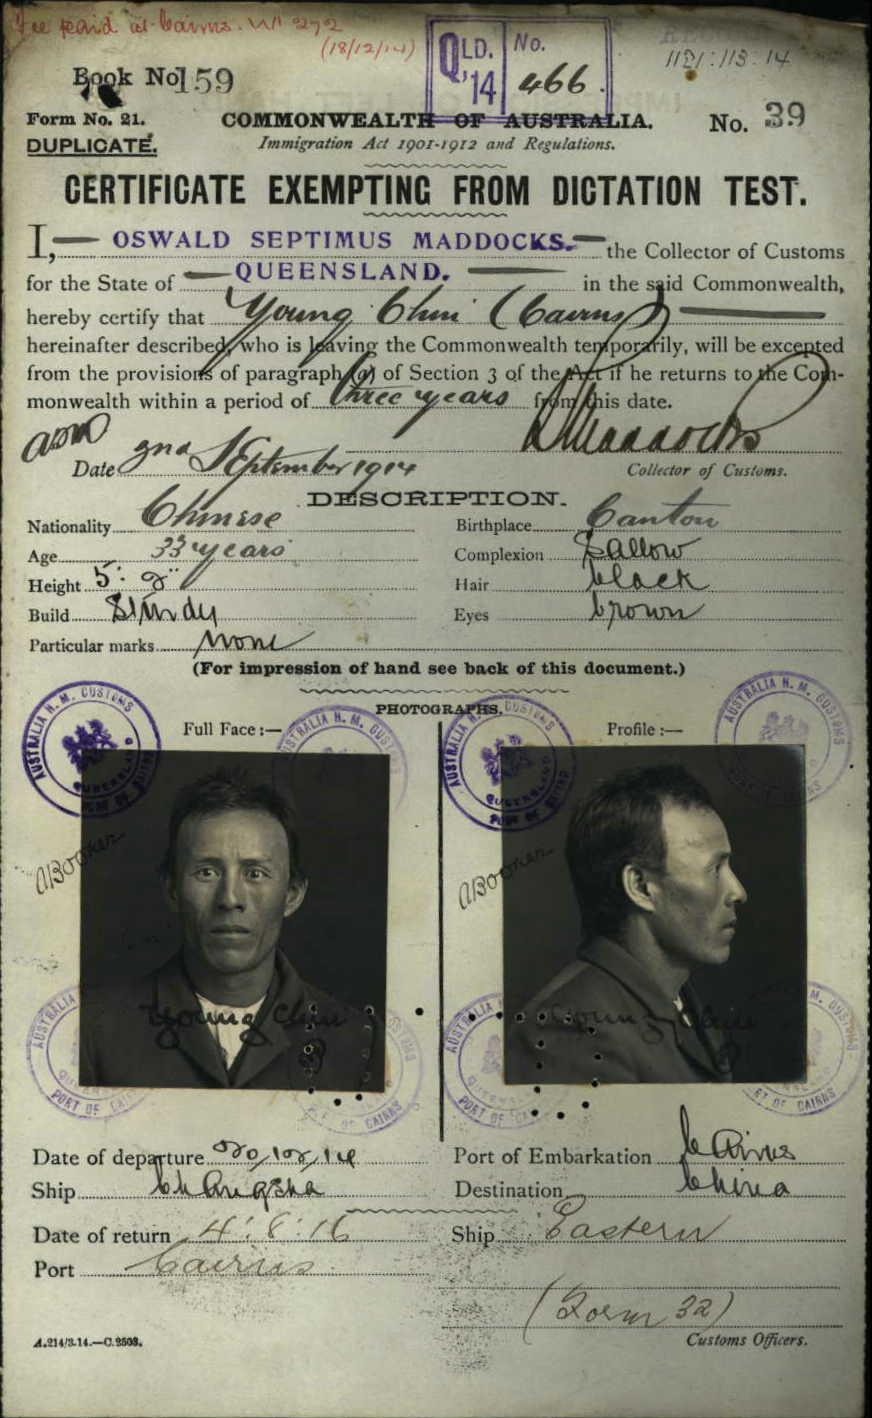 Fee paid at Cairns. M1 272
(18/12/14)
QLD. No.
'14 466.
Book No 159
Form No. 21.
COMMONWEALTH OF AUSTRALIA.
No. 39
DUPLICATE.
Immigration Act 1901-1912 and Regulations.
CERTIFICATE EXEMPTING FROM DICTATION TEST.
I, OSWALD SEPTIMUS MADDOCKS. the Collector of Customs
for the State of QUEENSLAND. in the said Commonwealth,
hereby certify that Young Chin (Cairns)
hereinafter described, who is leaving the Commonwealth temporarily, will be excepted
from the provisions of paragraph (a) of Section 3 of the Act if he returns to the Com-
monwealth within a period of three years from this date.
Maddocks
Date 2nd September 1914 Collector of Customs.
DESCRIPTION.
Nationality Chinese Birthplace Canton
Age 33 years Complexion Sallow
Height 5' 2" Hair black
Build Sturdy Eyes brown
Particular marks None
(For impression of hand see back of this document.)
PHOTOGRAPHS.
Full Face :— Profile :—
AUSTRALIA H. M. CUSTOMS
QUEENSLAND
PORT OF CAIRNS
ABooker
ABooker
Young Chin
Young Chin
Date of departure 20/12/14 Port of Embarkation Cairns
Ship Changsha Destination China
Date of return 4 : 8 : 16 Ship Eastern
Port Cairns
(Form 32)
A.214/3.14.—C.2503. Customs Officers.